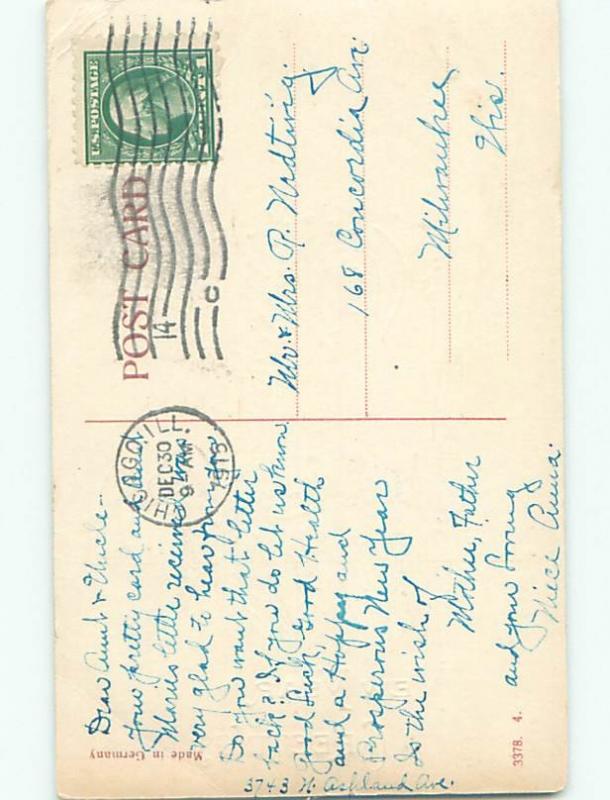 POST CARD
U.S. POSTAGE
CHICAGO, ILL.
DEC 30
9 AM
1913
14
C
Dear Aunt & Uncle-
Your pretty card and
Marie's letter received and was
very glad to hear from you
Do you want that letter
back? If you do let us know.
Good Luck, Good Health
and a Happy and
Prosperous New Year
Is the wish of
Mother, Father
and your loving
Niece Anna.
3743 N. Ashland Ave.
Mr & Mrs. R.
168 Concordia Ave.
Milwaukee
Wis.
Made in Germany
3378. 4.